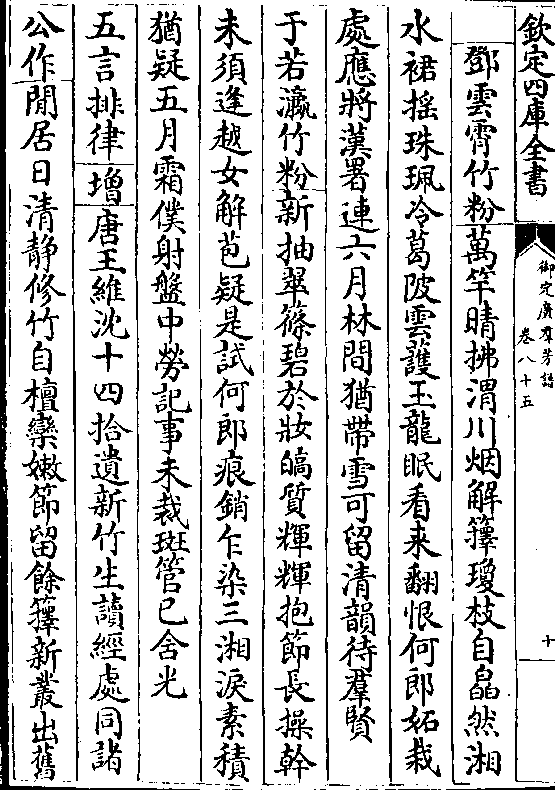 欽定四庫全書
御定廣羣芳譜
卷八十五
十
鄧雲霄竹粉萬竿晴拂渭川烟解籜瓊枝自皛然湘
水裙摇珠珮冷葛陂雲護玉龍眠看来翻恨何郎妬栽
處應將漢署連六月林間猶帶雪可留清韻待羣賢
于若瀛竹粉新抽翠篠碧於妝皜質輝輝抱節長操幹
未須逢越女解苞疑是試何郎痕銷乍染三湘淚素積
猶疑五月霜僕射盤中勞記事未裁斑管已舍光
五言排律增唐王維沈十四拾遺新竹生讀經處同諸
公作閒居日清静修竹自檀欒嫩節留餘籜新叢出舊